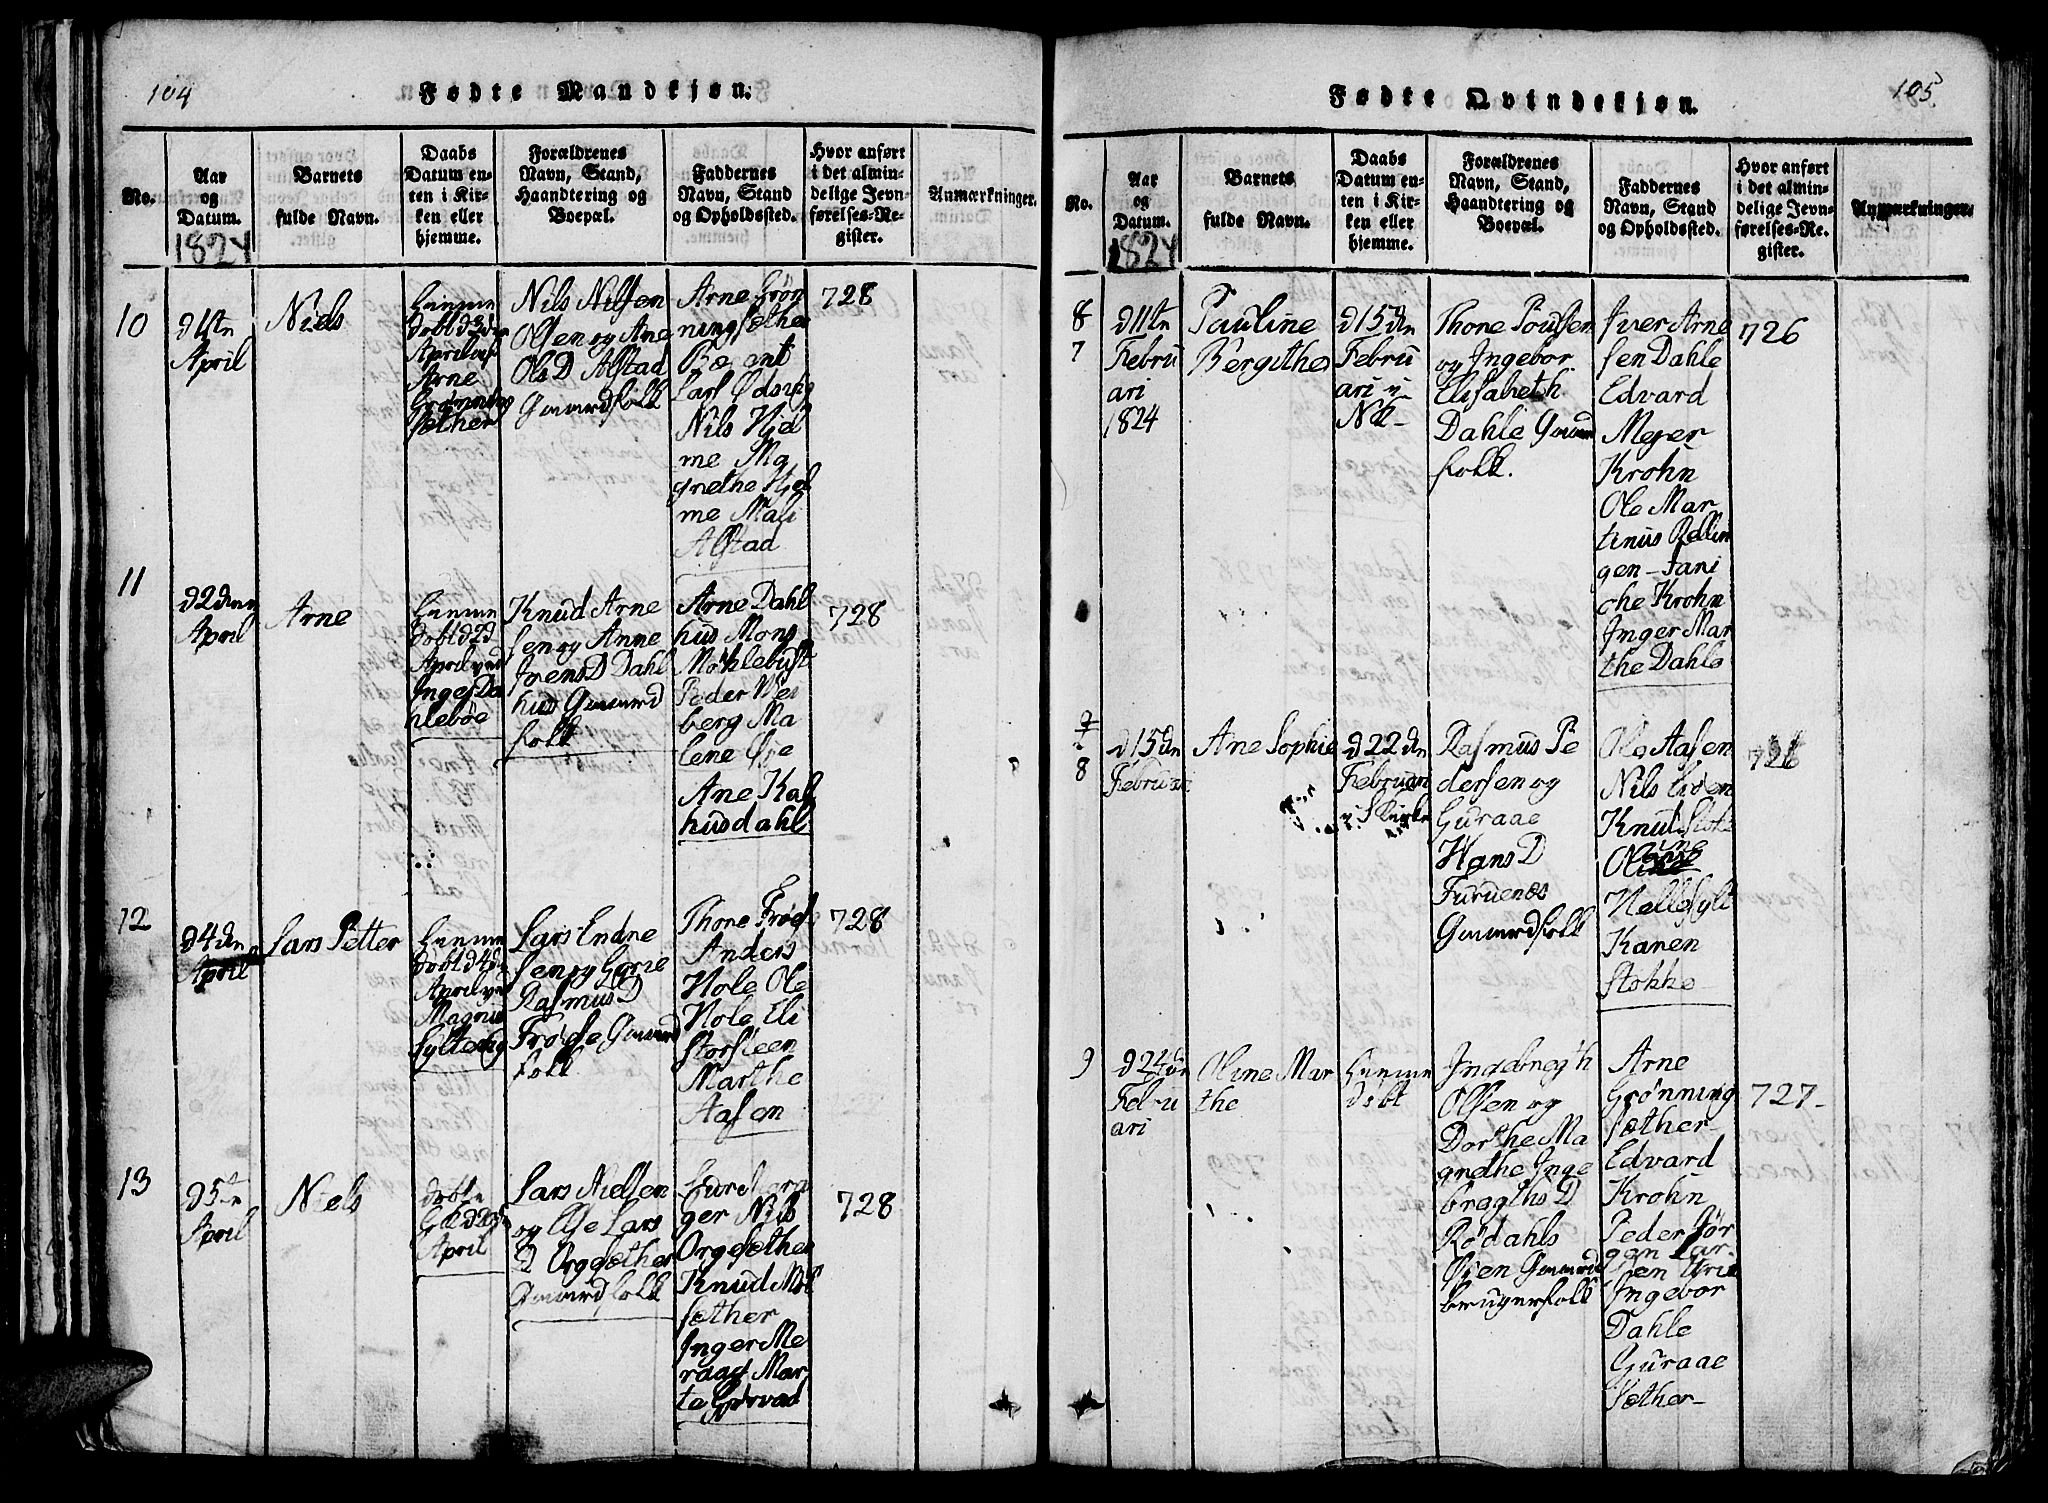 104
Fødte Mandkjøn.
No.
Aar
og
Datum.
1824
Barnets
fulde Navn.
Daabs
Datum en-
ten i Kir-
ken eller
hjemme.
Forældrenes
Navn, Stand,
Haandtering og
Boepæl.
Faddernes
Navn, Stand
og Opholdssted.
Hvor anført
i det almin-
delige Jevn-
førelses-Re-
gister.
Anmærkninger.
10
d 1ste
April
Niels
Hiemme
April
Arne
sæther
Nils Nilsen
Olsen og Ane
Ols D Alstad
Gaardfolk
Arne Grøn
ningsæther
Nils Hjel
me Ma
grethe Hjel
me Mali
Alstad
728
11
d 2den
April
Arne
Hiemme
døbt d 2d
April ved
Inges Da
hlebøe
Knud Arne
sen og Anne
Joens D Dahl
hus Gaard
folk
Arne Dahl
hus Mons
Møhlebust
Peder Ves
berg Ma
lene Øie
Ane Kal
husdahl
728
12
d 4de
April
Lars Petter
Hiemme
døbt d 4de
April ved
Magnus
Sylte
Lars Endre
sen og
Rasmus D
Frøise Gaard
folk
Thore Frøise
Anders
Hole Ole
Hole Eli
Storsteen
Marthe
Aasen
728
13
d 5te
April
Niels
døbt
April
Lars Nielsen
og Else Lars
D Orgesæther
Gaardfolk
ger Nils
Orgesæther
Knud
sæther
Inger Me
raas Mar
te
728
105
Fødte Qvindekjøn.
No.
Aar
og
Datum.
1824
Barnets
fulde Navn.
Daabs
Datum en-
ten i Kir-
ken eller
hjemme.
Forældrenes
Navn, Stand,
Haandtering og
Boepæl.
Faddernes
Navn, Stand
og Opholdssted.
Hvor anført
i det almin-
delige Jevn-
førelses-Re-
gister.
Anmærkninger.
8
7
d 11te
Febru
ari
1824
Pauline
Bergithe
d 15de
Febru
ari i
Thore Poulsen
og Ingebor
Elisabeth
Dahle Gaard
folk.
Iver Arne
sen Dahle
Edvard
Mejer
Krohn
Ole Mar
tinus Rellin
gen - Jani
che Krohn
Inger Mar
the Dahle
726
8
d 15de
Februari
Ane Sophie
d 22de
Februari
i S Kirke
Rasmus Pe
dersen og
Guraae
Hans D
Furuenæs
Gaardfolk
Ole Aasen
Nils Liden
Knud
Hellesylt
Karen
Stokke
726
9
d 24de
Febru
ari
Oline Mar
the
Hiemme
døbt
Olsen og
Dorthe Ma
grethe Inge
D
Rødahls
Øien Gaard
brugerfolk
Arne
Grønning
sæther
Edvard
Krohn
Peder Jør
gen Lar-
sen
Ingebor
Dahle
Guraae
Sæther
727